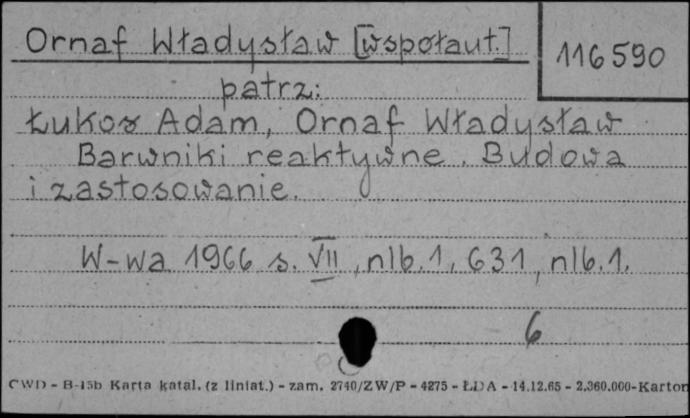 Ornaf Władysław [współaut.]
116590
patrz:
Łukoś Adam, Ornaf Władysław
Barwniki reaktywne. Budowa
i zastosowanie.
W-wa 1966 s. VII, nlb. 1, 631, nlb. 1.
6
CWD - B-15b Karta katal. (z liniat.) - zam. 2740/ZW/P - 4275 - ŁDA - 14.12.65 - 2.360.000-Karton